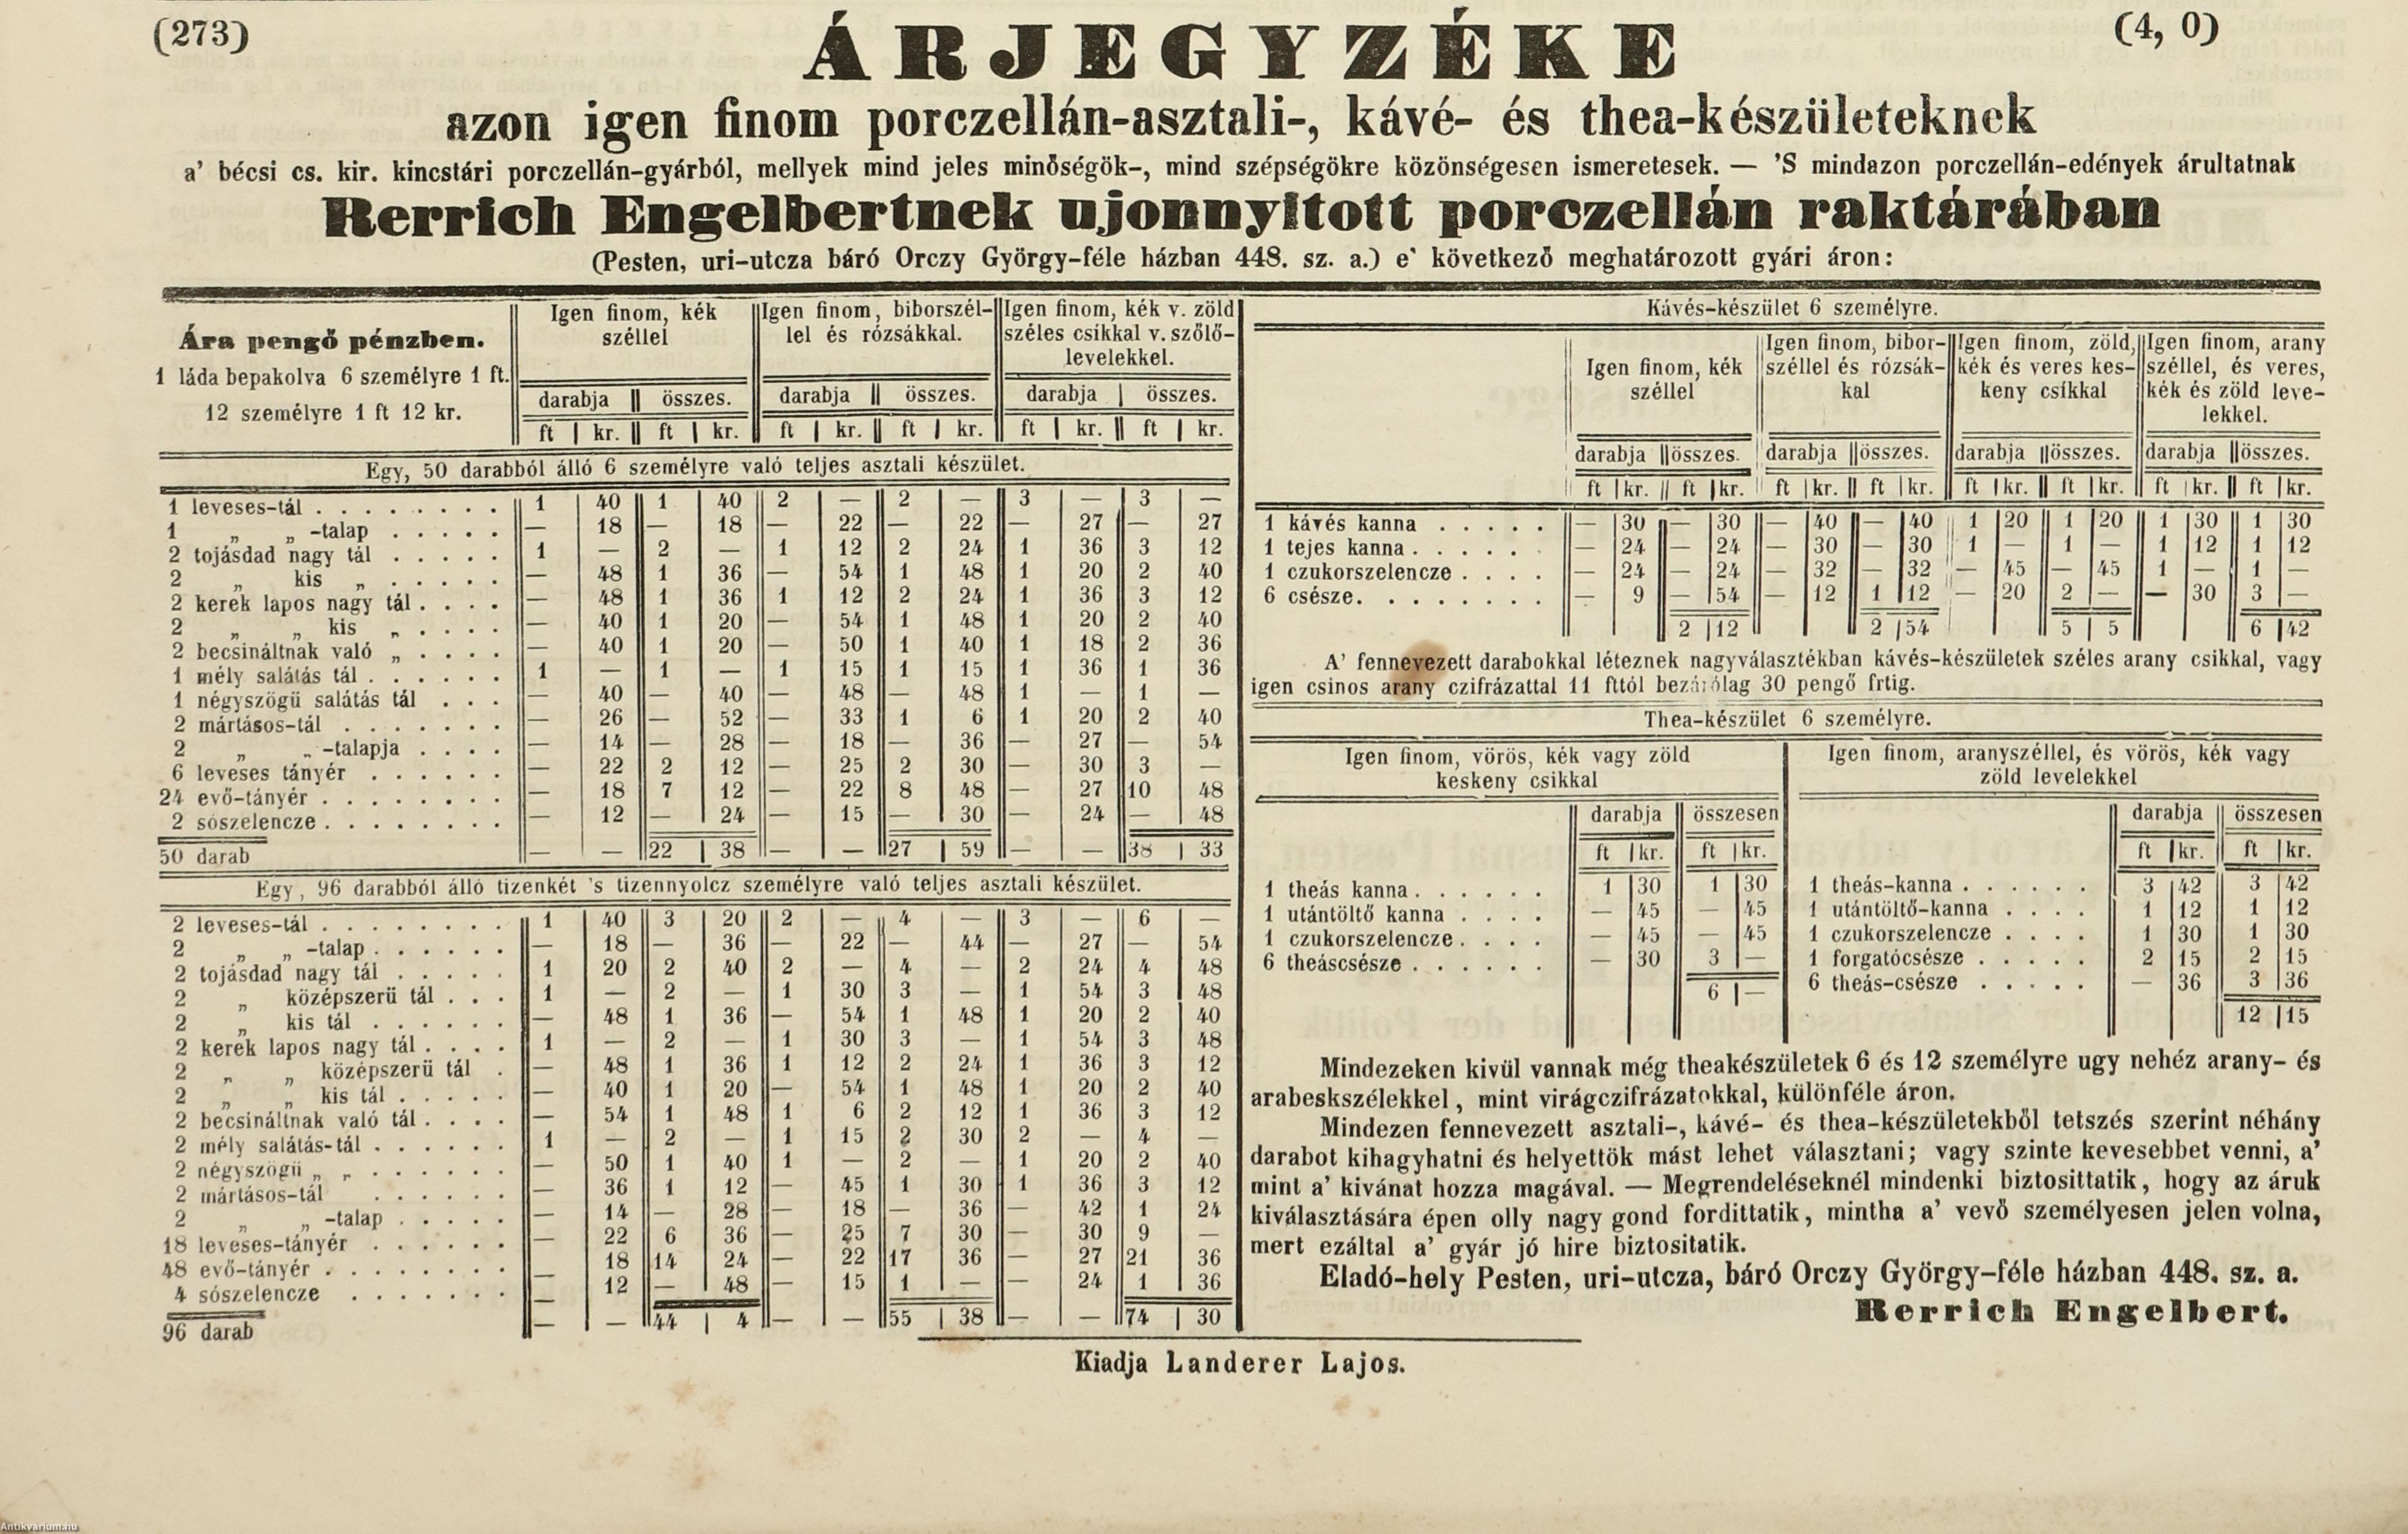 (273)
ÁRJEGYZÉKE
(4, 0)
azon igen finom porczellán-asztali-, kávé- és thea-készületeknek
a' bécsi cs. kir. kincstári porczellán-gyárból, mellyek mind jeles minőségök-, mind szépségökre közönségesen ismeretesek. — 'S mindazon porczellán-edények árultatnak
Rerrich Engelbertnek ujonnyitott porczellán raktárában
(Pesten, uri-utcza báró Orczy György-féle házban 448. sz. a.) e' következő meghatározott gyári áron:
Ára pengő pénzben.
1 láda bepakolva 6 személyre 1 ft.
12 személyre 1 ft 12 kr.
Igen finom, kék
széllel
Igen finom, biborszél-
lel és rózsákkal.
Igen finom, kék v. zöld
széles csíkkal v. szőlő-
levelekkel.
darabja || összes. darabja || összes. darabja | összes.
ft | kr. || ft | kr. ft | kr. || ft | kr. ft | kr. || ft | kr.
Egy, 50 darabból álló 6 személyre való teljes asztali készület.
1 leveses-tál . . . . . . . . 1 40 1 40 2 — 2 — 3 — 3 —
1 „ „ -talap . . . . . — 18 — 18 — 22 — 22 — 27 — 27
2 tojásdad nagy tál . . . . . 1 — 2 — 1 12 2 24 1 36 3 12
2 „ kis „ . . . . . — 48 1 36 — 54 1 48 1 20 2 40
2 kerek lapos nagy tál . . . . — 48 1 36 1 12 2 24 1 36 3 12
2 „ „ kis „ . . . . — 40 1 20 — 54 1 48 1 20 2 40
2 becsináltnak való „ . . . . — 40 1 20 — 50 1 40 1 18 2 36
1 mély salátás tál . . . . . . 1 — 1 — 1 15 1 15 1 36 1 36
1 négyszögü salátás tál . . . — 40 — 40 — 48 — 48 1 — 1 —
2 mártásos-tál . . . . . . . — 26 — 52 — 33 1 6 1 20 2 40
2 „ „ -talapja . . . . — 14 — 28 — 18 — 36 — 27 — 54
6 leveses tányér . . . . . . — 22 2 12 — 25 2 30 — 30 3 —
24 evő-tányér . . . . . . . . — 18 7 12 — 22 8 48 — 27 10 48
2 sószelencze . . . . . . . . — 12 — 24 — 15 — 30 — 24 — 48
50 darab — — 22 38 — — 27 59 — — 38 33
Egy, 96 darabból álló tizenkét 's tizennyolcz személyre való teljes asztali készület.
2 leveses-tál . . . . . . . . 1 40 3 20 2 — 4 — 3 — 6 —
2 „ „ -talap . . . . . . — 18 — 36 — 22 — 44 — 27 — 54
2 tojásdad nagy tál . . . . . 1 20 2 40 2 — 4 — 2 24 4 48
2 „ középszerü tál . . . 1 — 2 — 1 30 3 — 1 54 3 48
2 „ kis tál . . . . . . — 48 1 36 — 54 1 48 1 20 2 40
2 kerek lapos nagy tál . . . . 1 — 2 — 1 30 3 — 1 54 3 48
2 „ „ középszerü tál . — 48 1 36 1 12 2 24 1 36 3 12
2 „ „ kis tál . . . . . — 40 1 20 — 54 1 48 1 20 2 40
2 becsináltnak való tál . . . . — 54 1 48 1 6 2 12 1 36 3 12
2 mély salátás-tál . . . . . . 1 — 2 — 1 15 2 30 2 — 4 —
2 négyszögü „ „ . . . . . . — 50 1 40 1 — 2 — 1 20 2 40
2 mártásos-tál . . . . . . — 36 1 12 — 45 1 30 1 36 3 12
2 „ „ -talap . . . . . — 14 — 28 — 18 — 36 — 42 1 24
18 leveses-tányér . . . . . . — 22 6 36 — 25 7 30 — 30 9 —
48 evő-tányér . . . . . . . . — 18 14 24 — 22 17 36 — 27 21 36
4 sószelencze . . . . . . . — 12 — 48 — 15 1 — — 24 1 36
96 darab — — 44 4 — — 55 38 — — 74 30
Kávés-készület 6 személyre.
Igen finom, kék
széllel
Igen finom, bibor-
széllel és rózsák-
kal
Igen finom, zöld,
kék és veres kes-
keny csíkkal
Igen finom, arany
széllel, és veres,
kék és zöld leve-
lekkel.
darabja || összes. darabja || összes. darabja || összes. darabja || összes.
ft | kr. || ft | kr. ft | kr. || ft | kr. ft | kr. || ft | kr. ft | kr. || ft | kr.
1 kávés kanna . . . . . — 30 — 30 — 40 — 40 1 20 1 20 1 30 1 30
1 tejes kanna . . . . . . — 24 — 24 — 30 — 30 1 — 1 — 1 12 1 12
1 czukorszelencze . . . . — 24 — 24 — 32 — 32 — 45 — 45 1 — 1 —
6 csésze. . . . . . . . . — 9 — 54 — 12 1 12 — 20 2 — — 30 3 —
2 | 12 2 | 54 5 | 5 6 | 42
A' fennevezett darabokkal léteznek nagyválasztékban kávés-készületek széles arany csikkal, vagy
igen csinos arany czifrázattal 11 fttól bezárólag 30 pengő frtig.
Thea-készület 6 személyre.
Igen finom, vörös, kék vagy zöld
keskeny csikkal
darabja || összesen
ft | kr. ft | kr.
1 theás kanna . . . . . . 1 30 1 30
1 utántöltő kanna . . . . — 45 — 45
1 czukorszelencze . . . . — 45 — 45
6 theáscsésze . . . . . . — 30 3 —
6 | —
Igen finom, aranyszéllel, és vörös, kék vagy
zöld levelekkel
darabja || összesen
ft | kr. ft | kr.
1 theás-kanna . . . . . . 3 42 3 42
1 utántöltő-kanna . . . . 1 12 1 12
1 czukorszelencze . . . . 1 30 1 30
1 forgatócsésze . . . . . 2 15 2 15
6 theás-csésze . . . . . — 36 3 36
12 | 15
Mindezeken kivül vannak még theakészületek 6 és 12 személyre ugy nehéz arany- és
arabeskszélekkel, mint virágczifrázatokkal, különféle áron.
Mindezen fennevezett asztali-, kávé- és thea-készületekből tetszés szerint néhány
darabot kihagyhatni és helyettök mást lehet választani; vagy szinte kevesebbet venni, a'
mint a' kivánat hozza magával. — Megrendeléseknél mindenki biztosittatik, hogy az áruk
kiválasztására épen olly nagy gond fordittatik, mintha a' vevő személyesen jelen volna,
mert ezáltal a' gyár jó hire biztositatik.
Eladó-hely Pesten, uri-utcza, báró Orczy György-féle házban 448. sz. a.
Rerrich Engelbert.
Kiadja Landerer Lajos.
Antikvárium.hu